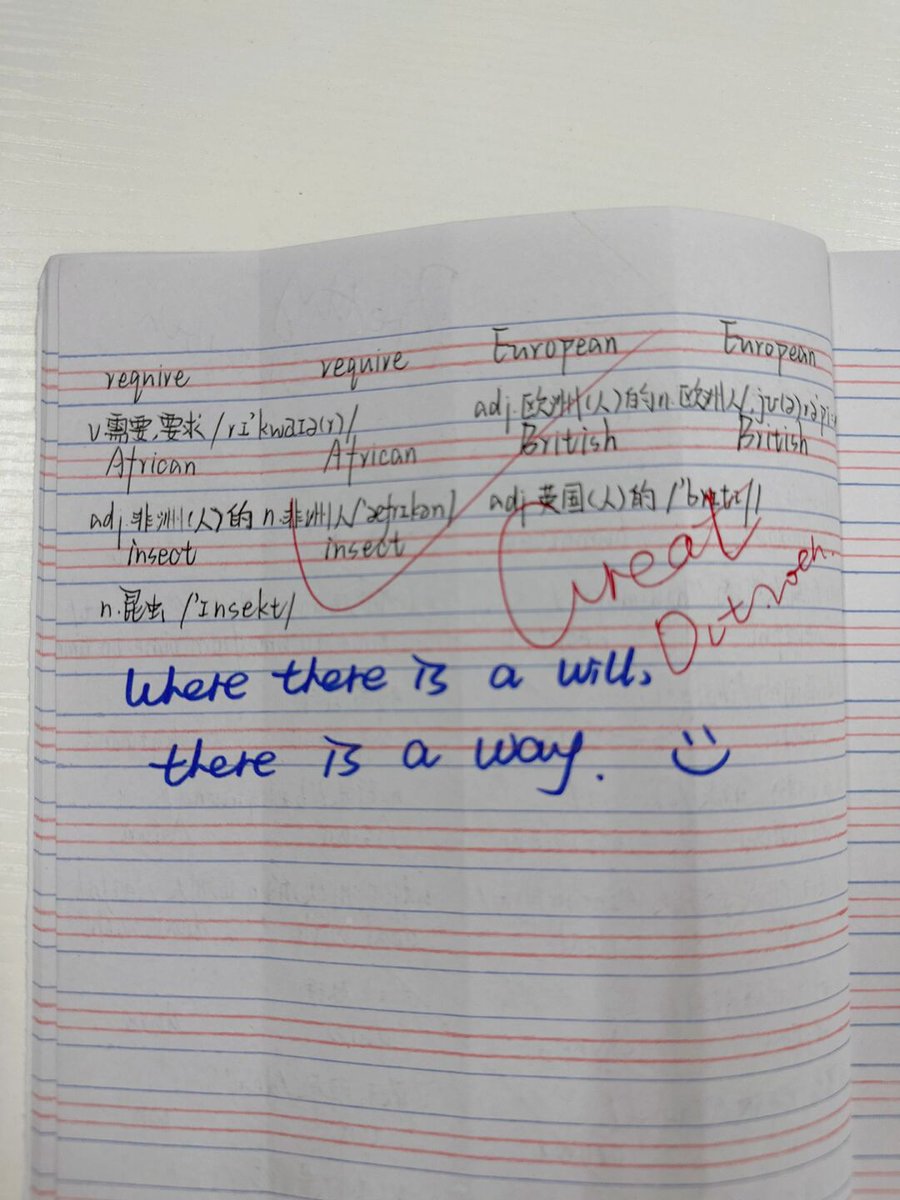 require require European European
v需要,要求 /rɪ'kwaɪə(r)/ adj.欧洲(人)的n.欧洲人/
African African British British
adj.非洲(人)的 n.非洲人/'æfrɪkən/ adj.英国(人)的 /'brɪtɪʃ/
insect insect
n.昆虫 /'ɪnsekt/
Great
Where there is a will,
there is a way.